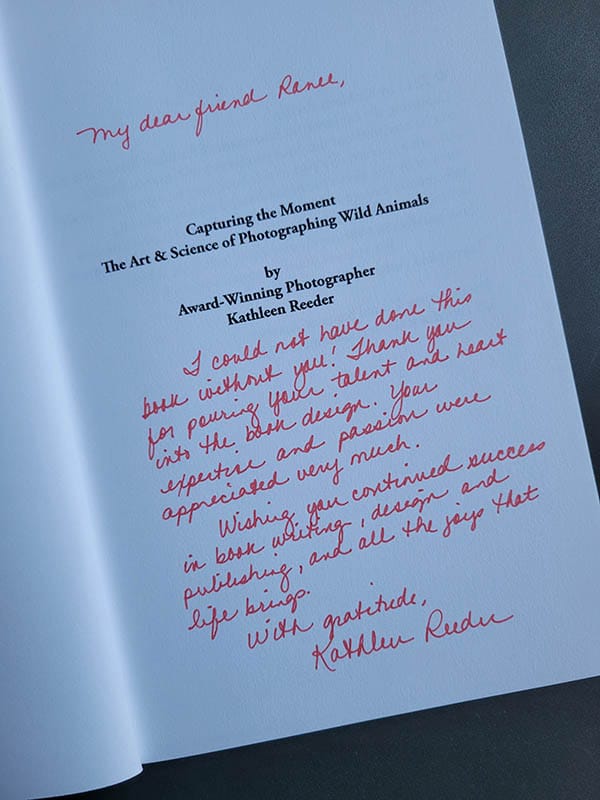 My dear friend Ranee,
Capturing the Moment
The Art & Science of Photographing Wild Animals
by
Award-Winning Photographer
Kathleen Reeder
I could not have done this
book without you! Thank you
for pouring your talent and heart
into the book design. Your
expertise and passion were
appreciated very much.
Wishing you continued success
in book writing, design and
publishing, and all the joys that
life brings.
With gratitude,
Kathleen Reeder